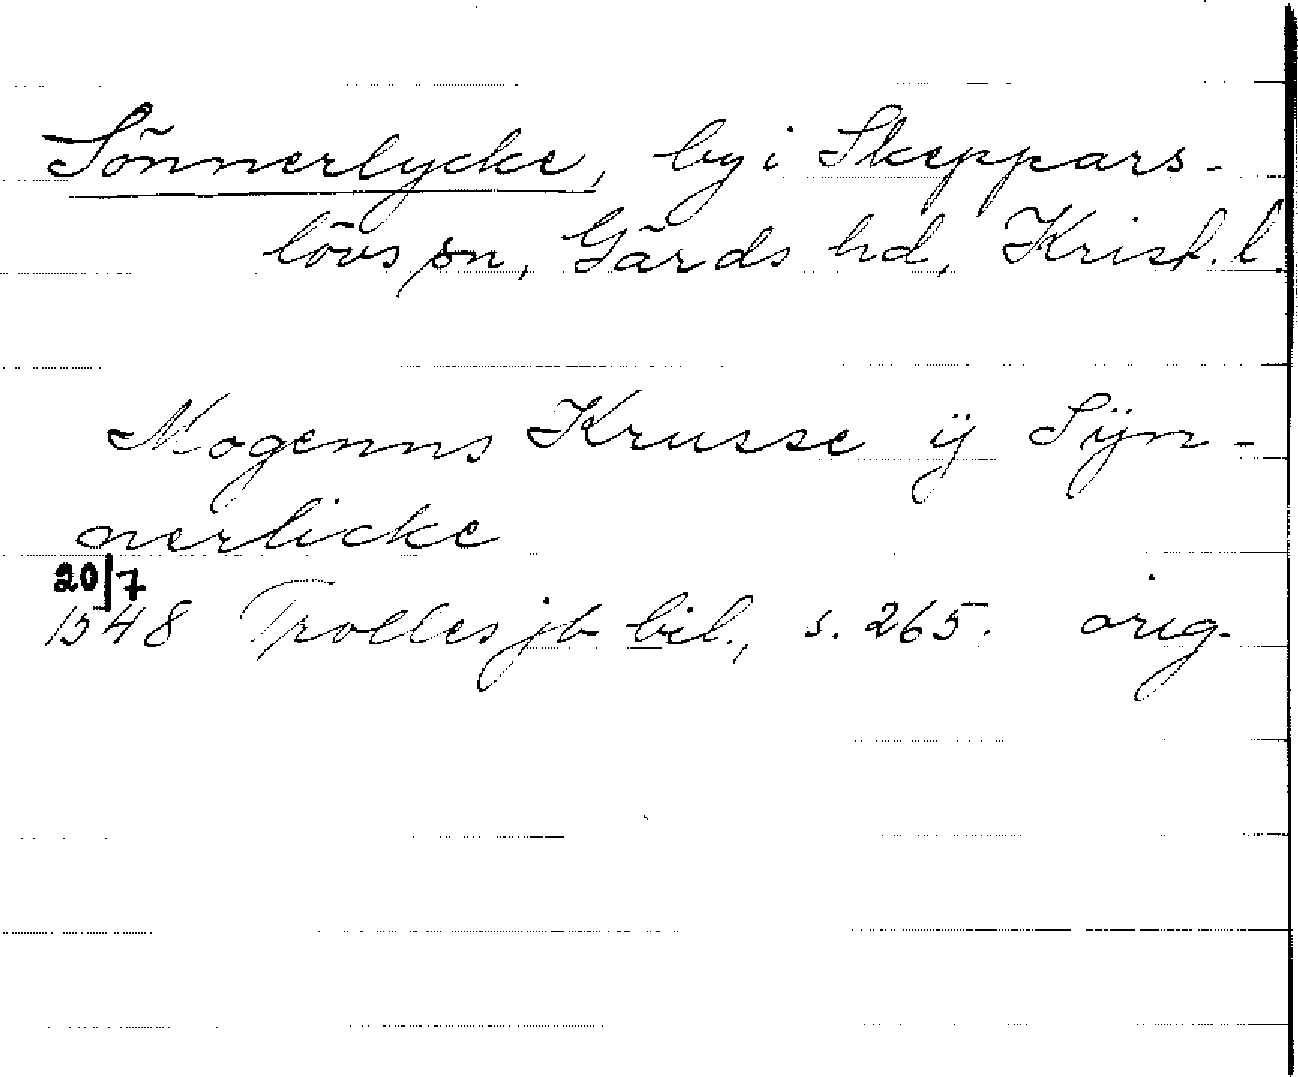 Sönnerlycke, by i Skeppars-
lövs sn, Gärds hd, Krist. l.
Mogenns Krusse ÿ Sÿn-
nerlicke
20/7
1548 Trolles jb bil., s. 265. orig.